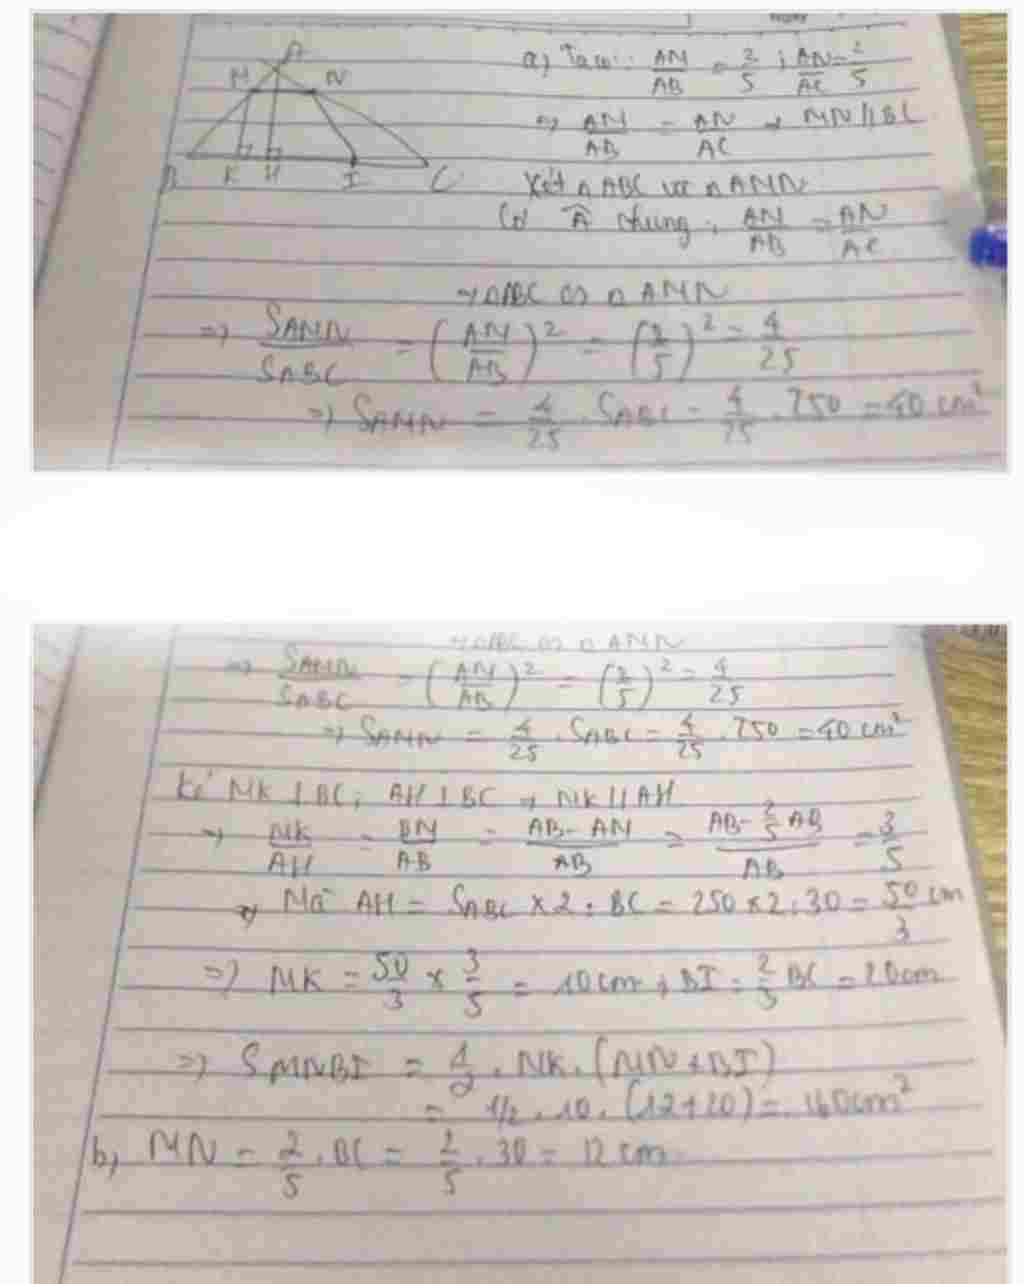 A
M N
B K H I C
a) Ta có: AM/AB = 2/5 ; AN/AC = 2/5
=> AM/AB = AN/AC → MN // BC
Xét △ABC và △AMN
Có Â chung ; AM/AB = AN/AC
→ △ABC ∽ △AMN
=> SAMN/SABC = (AM/AB)² = (2/5)² = 4/25
=> SAMN = 4/25 . SABC = 4/25 . 250 = 40 cm²
→ △ABC ∽ △AMN
=> SAMN/SABC = (AM/AB)² = (2/5)² = 4/25
=> SAMN = 4/25 . SABC = 4/25 . 250 = 40 cm²
Kẻ MK ⊥ BC; AH ⊥ BC → MK // AH
→ MK/AH = BM/AB = AB - AM/AB = AB - 2/5 AB/AB = 3/5
Mà AH = SABC x 2 : BC = 250 x 2 : 30 = 50/3 cm
=> MK = 50/3 x 3/5 = 10 cm ; BI = 2/3 BC = 20 cm
=> SMNBI = 1/2 . MK . (MN + BI)
= 1/2 . 10 . (12 + 20) = 160 cm²
b, MN = 2/5 . BC = 2/5 . 30 = 12 cm